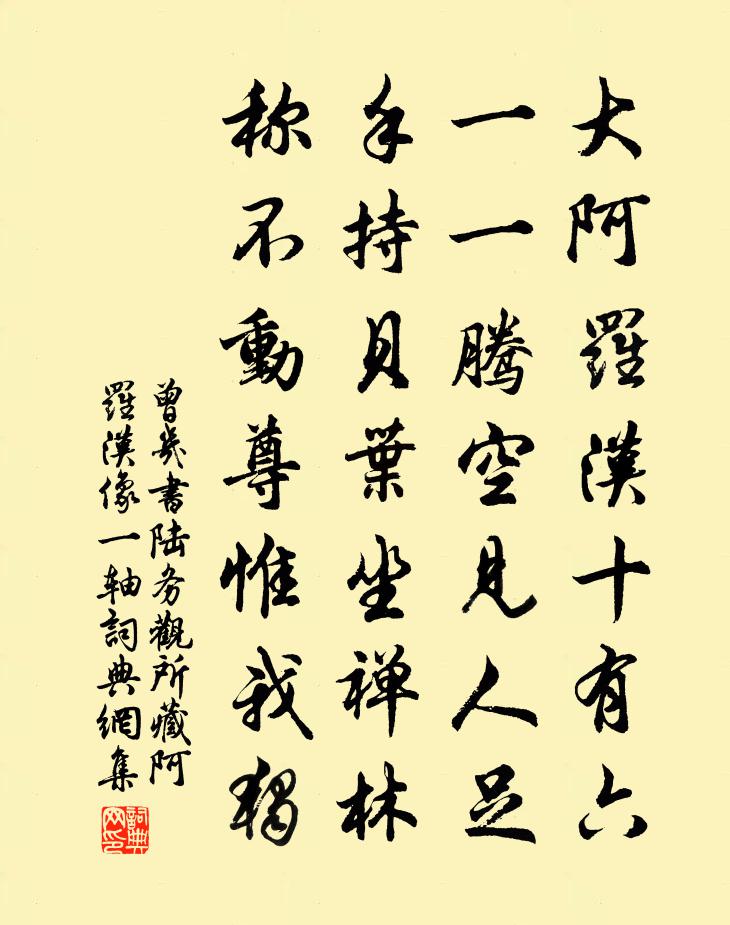 大阿羅漢十有六
一一騰空見人足
手持貝葉坐禅林
称不動尊惟我獨
曾幾書陆务觀所藏阿
羅漢像一轴詞典網集
詞典
网印